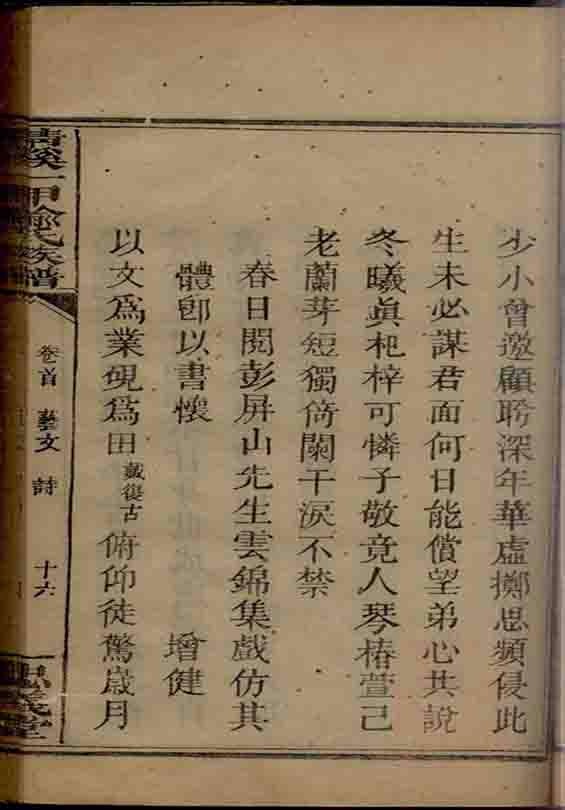 少小曾邀顧盼深年華虛擲思頻侵此
生未必謀君面何日能償望弟心共說
冬曦眞杞梓可憐子敬竟人琴椿萱已
老蘭芽短獨倚闌干淚不禁
春日閱彭屏山先生雲錦集戲仿其
體卽以書懷
增健
以文爲業硯爲田戴復古俯仰徒驚歲月
清溪一甲喻氏族譜
卷首 藝文 詩 十六
堂